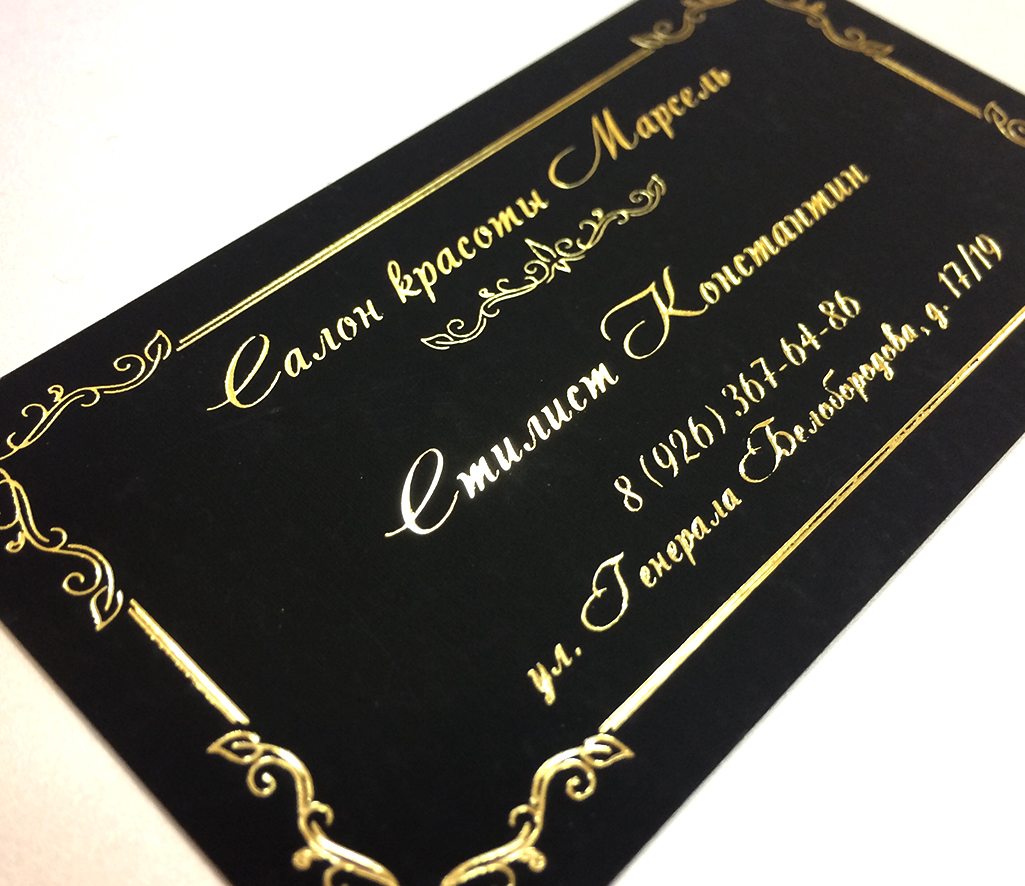 Салон красоты Марсель
Стилист Константин
8 (926) 367-64-86
ул. Генерала Белобородова, д. 17/19